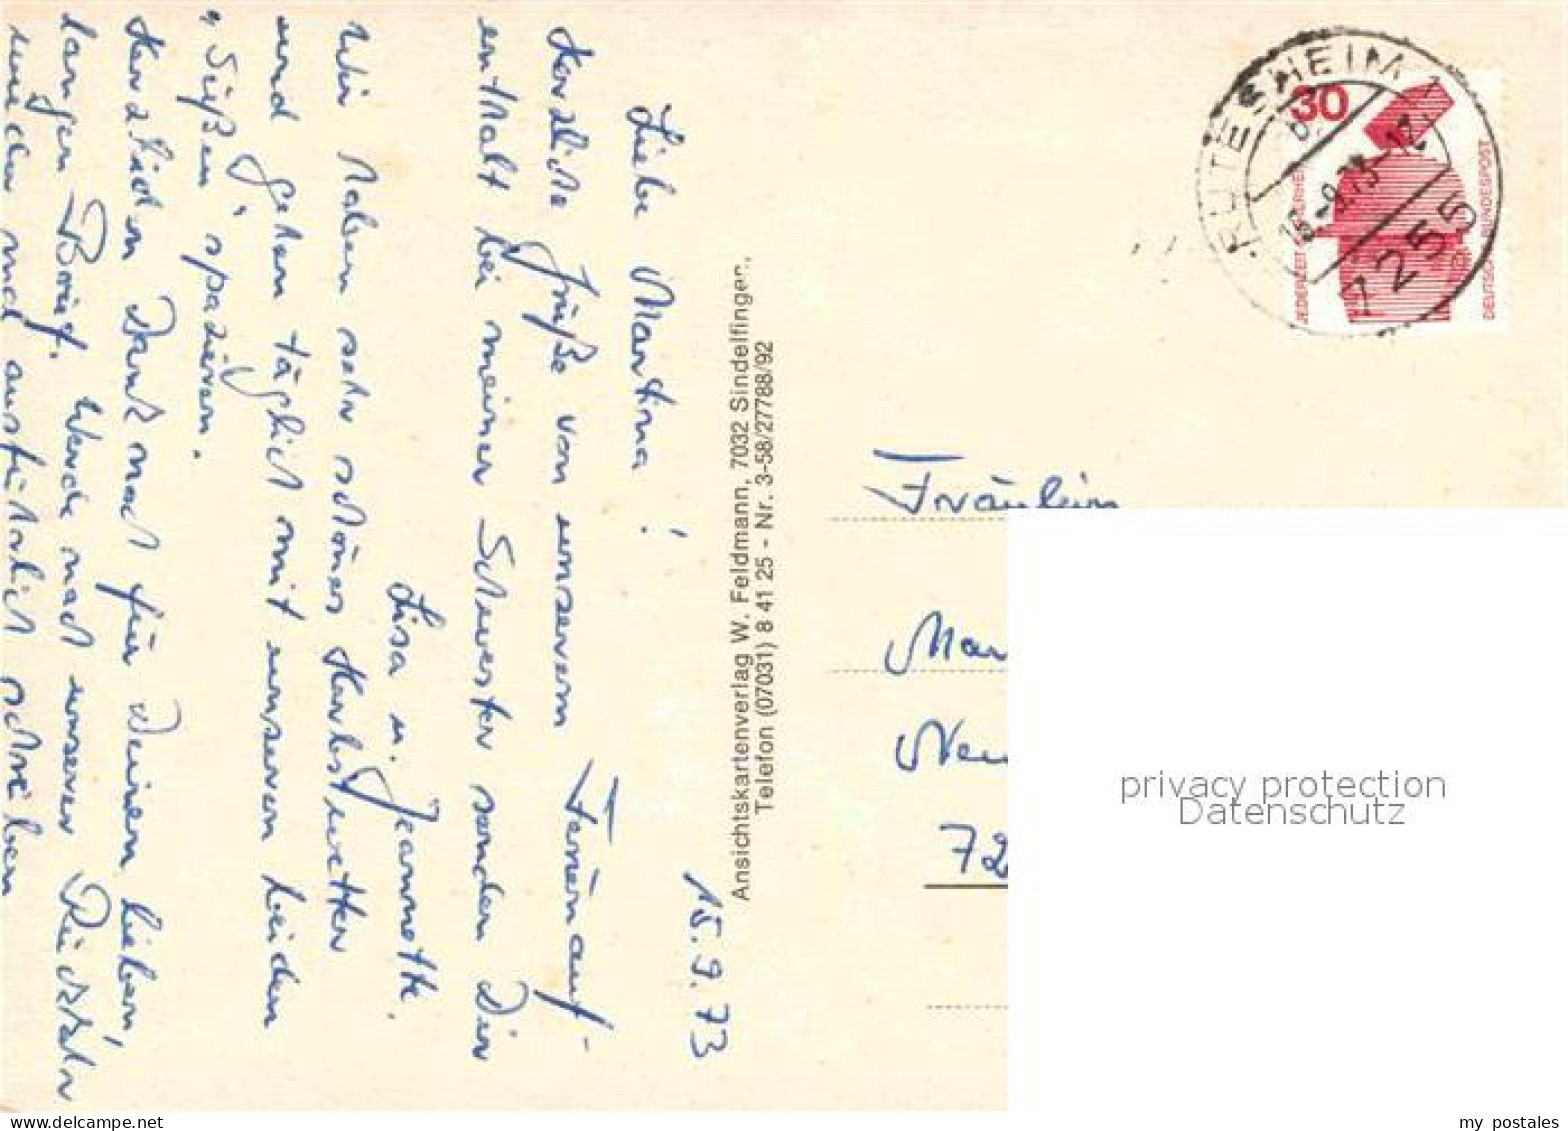 15.9.73
Liebe Martina!
Herzliche Grüße von unserem Ferienauf-
enthalt bei meiner Schwester senden Dir
Lisa u. Jeannette.
Wir haben sehr schönes Herbstwetter
und gehen täglich mit unseren beiden
„Süßen“ spazieren.
Herzlichen Dank noch für Deinen lieben,
langen Brief. Werde nach unserer Rückkehr
wieder mal ausführlich schreiben
Ansichtskartenverlag W. Feldmann, 7032 Sindelfingen,
Telefon (07031) 8 41 25 - Nr. 3-58/27788/92
RUTESHEIM
15.-9.73-12
7255
30
JEDERZEIT SICHERHEIT
DEUTSCHE BUNDESPOST
Fräulein
Mar
Neu
72
privacy protection
Datenschutz
my postales